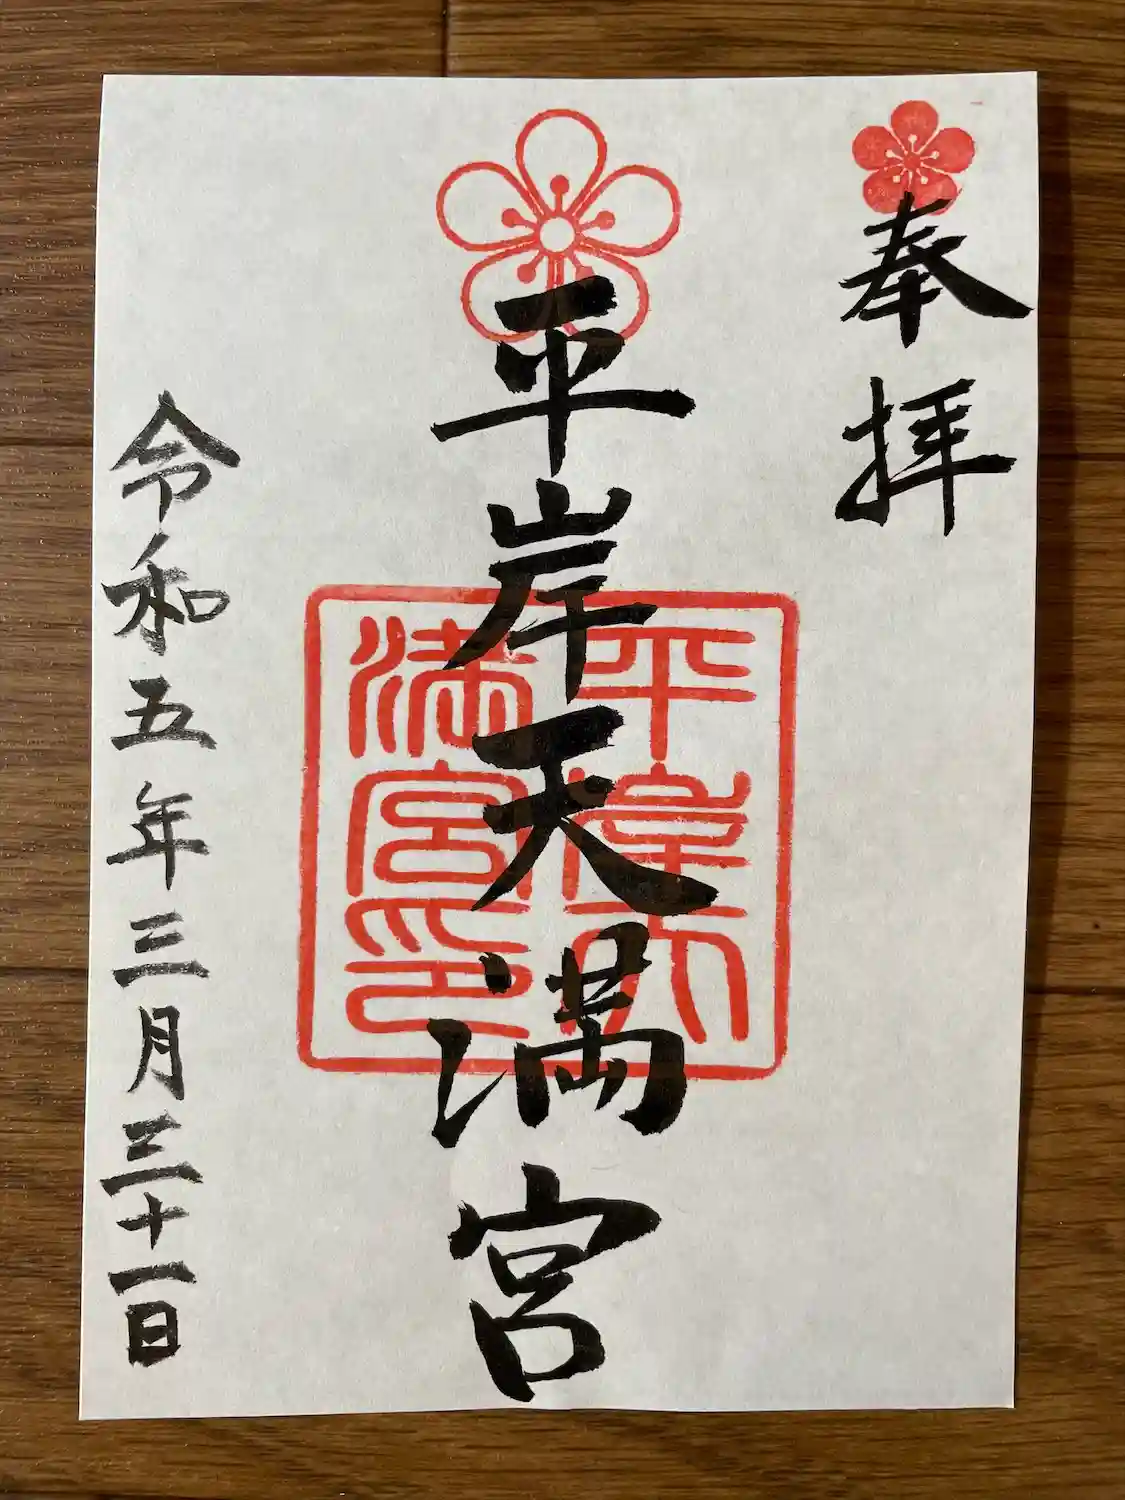 奉拝
平岸天満宮
平岸天
満宮印
令和五年三月三十一日